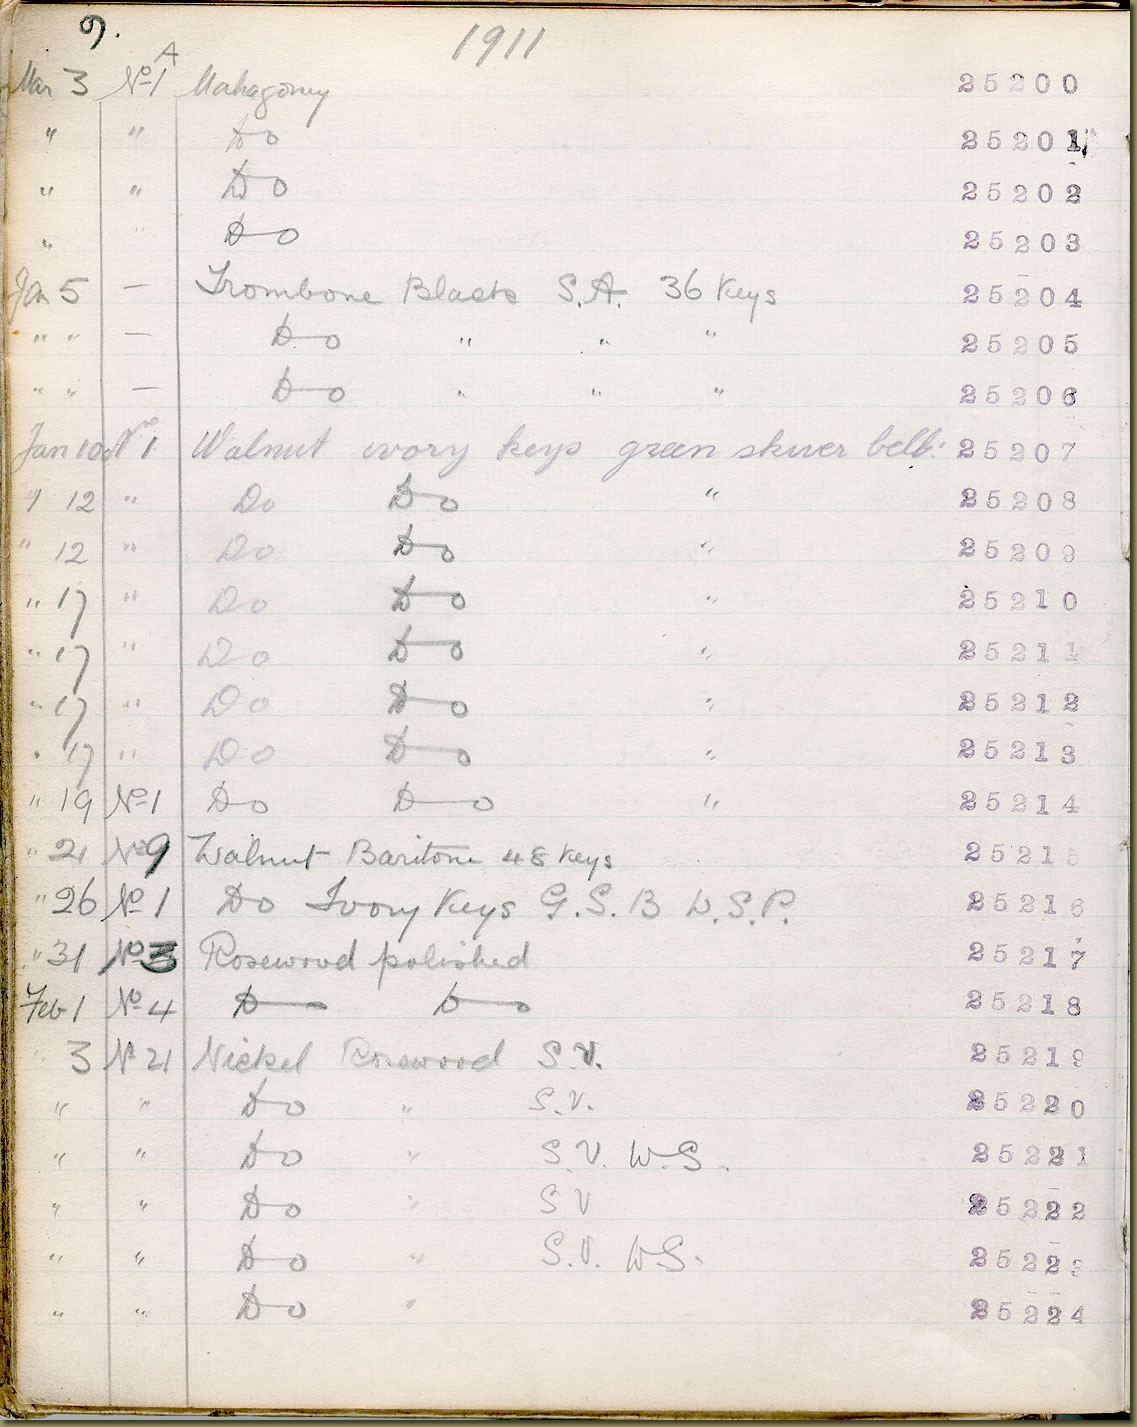 9.
1911
A
Mar 3 No 1 Mahagoney 25200
" " Do 25201
" " Do 25202
" " Do 25203
Jan 5 — Trombone Blasts S.A. 36 Keys 25204
" " — Do " " " 25205
" " — Do " " " 25206
Jan 10 No 1 Walnut ivory keys green skiver bell: 25207
" 12 " Do Do " 25208
" 12 " Do Do " 25209
" 17 " Do Do " 25210
" 17 " Do Do " 25211
" 17 " Do Do " 25212
" 17 " Do Do " 25213
" 19 No 1 Do Do " 25214
" 21 No 9 Walnut Baritone 48 keys 25215
" 26 No 1 Do Ivory Keys G.S.B W.S.P. 25216
" 31 No 3 Rosewood polished 25217
Feb 1 No 4 Do Do 25218
" 3 No 21 Nickel Rosewood S.V. 25219
" " Do " S.V. 25220
" " Do " S.V. W.S. 25221
" " Do " S V 25222
" " Do " S.V. W.S. 25223
" " Do " 25224